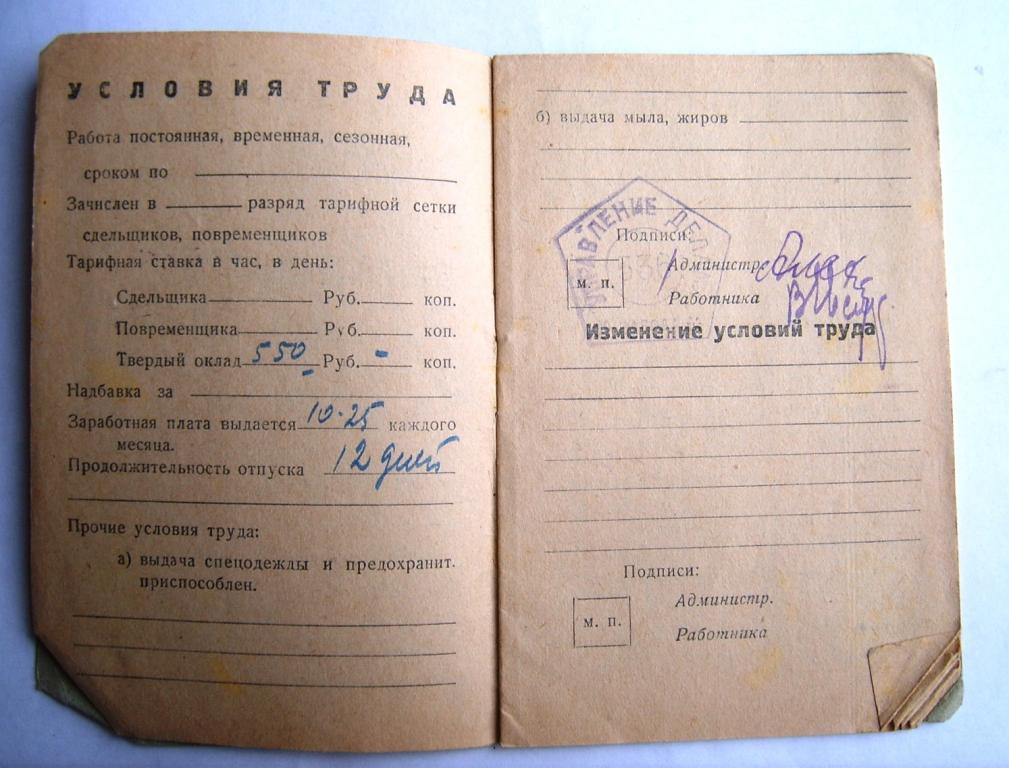 УСЛОВИЯ ТРУДА
Работа постоянная, временная, сезонная,
сроком по
Зачислен в разряд тарифной сетки
сдельщиков, повременщиков
Тарифная ставка в час, в день:
Сдельщика Руб. коп.
Повременщика Руб. коп.
Твердый оклад 550 Руб. - коп.
Надбавка за
Заработная плата выдается 10-25 каждого
месяца.
Продолжительность отпуска 12 дней
Прочие условия труда:
а) выдача спецодежды и предохранит.
приспособлен.
б) выдача мыла, жиров
УПРАВЛЕНИЕ ДЕЛ
Подписи:
Администр.
м. п.
Работника
Изменение условий труда
Подписи:
Администр.
м. п.
Работника